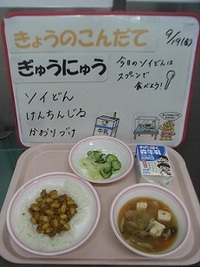 きょうのこんだて
9/19(金)
ぎゅうにゅう
今日のソイどんは
スプーンで
食べよう！
ソイどん
けんちんじる
かおりづけ
牛乳